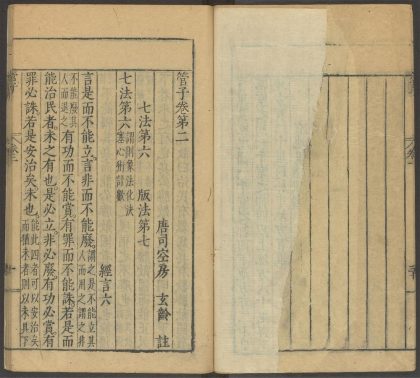 管子卷第二
唐司空房 玄齡 註
七法第六 版法第七
七法第六 謂則象法化決塞心術計數 經言六
言是而不能立言非而不能廢 謂之是不能立其人而用之謂之非不能廢其人而退之
有功而不能賞有罪而不能誅若是而
能治民者未之有也是必立非必廢有功必賞有
罪必誅若是安治矣未也 能此四者可以安治矣而猶未者則以未具下